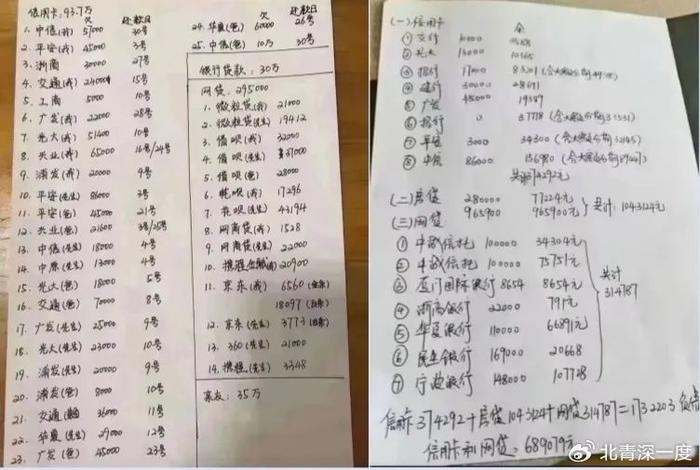 信用卡：93.7万
欠 还款日
1. 中信(我) 57000 30号
2. 平安(我) 45000 3号
3. 浙商 30000 27号
4. 交通(我) 24000 15号
5. 工商 5000 10号
6. 广发(我) 22000 28号
7. 光大(我) 51400 10号
8. 兴业(我) 65000 16号/24号
9. 浦发(我) 20000 9号
10. 平安(先生) 86000 3号
11. 平安(爸) 45000 21号
12. 兴业(爸) 21600
13. 中信(先生) 18000 4号
14. 中原(先生) 13000 4号
15. 光大(爸) 18000 5号
16. 交通(爸) 7000 8号
17. 广发(先生) 25000 9号
18. 光大(先生) 23000 10号
19. 浦发(先生) 20000 9号
20. 浦发(爸) 8000 10号
21. 交通 36000 11号
22. 华夏(先生) 29000 12号
23. 广发(爸) 45000 23号
欠 还款日
24. 华夏(爸) 60000 26号
25. 中信(爸) 10万 30号
银行贷款：30万
网贷：295000
1. 微粒贷(我) 21000
2. 微粒贷(先生) 19412
3. 借呗(我) 32000
4. 借呗(先生) 37000
5. 借呗(爸) 28000
6. 花呗(我) 17296
7. 花呗(先生) 43194
8. 网商贷(我) 1528
9. 网商贷(先生) 22000
10. 携程金融(我) 20900
11. 京东(我) 6560(金条)
18097(白条)
12. 京东(先生) 3773(白条)
13. 360(先生) 21000
14. 携程(先生) 3348
亲友：35万
(一)信用卡 余
① 交行 10000
② 光大 13000
③ 招行 17000 83201
④ 建行 30000 28691
⑤ 广发 45000 19387
⑥ 招行 0 37778
⑦ 平安 3000 34300
⑧ 中信 86000 136980
共 374292元
(二)房贷 280000 77224元
965900 965900元 共计：1043124元
(三)网贷
① 中诚信托 100000 34304元
② 中诚信托 100000 75751元
③ 厦门国际银行 8654 8654元
④ 浙商银行 22000 791元
⑤ 华夏银行 110000 66891元
⑥ 民生银行 169000 20668
⑦ 宁波银行 148000 107728
共计
314787
信用卡374292+房贷1043124+网贷314787=1732203
信用卡和网贷：689079元
@北青深一度